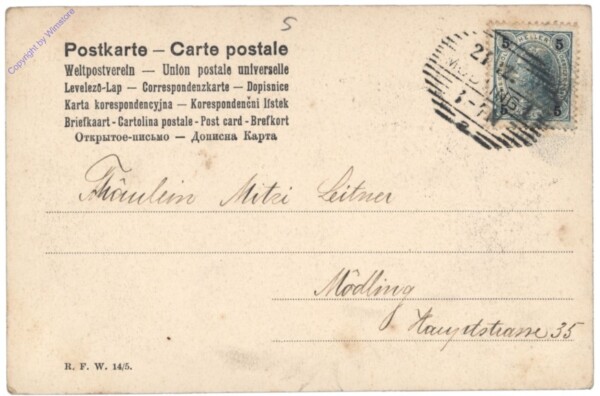 Copyright by Wirnstore
5
Postkarte — Carte postale
Weltpostverein — Union postale universelle
Levelező-Lap — Correspondenzkarte — Dopisnice
Karta korespondencyjna — Korespondenční lístek
Briefkaart - Cartolina postale - Post card - Brefkort
Открытое-письмо — Дописна Карта
5 5
5 5
Fräulein Mitzi Leitner
Mödling
Hauptstrasse 35
R. F. W. 14/5.